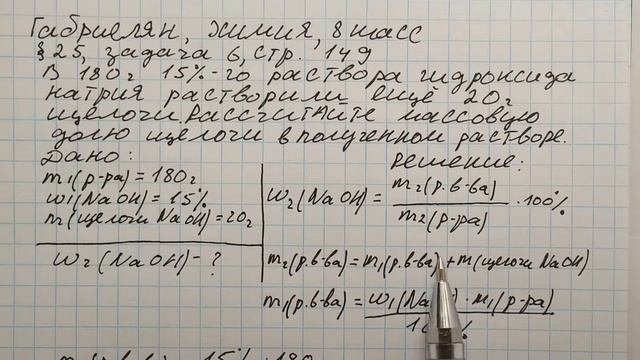 Габриелян, химия, 8 класс
§ 25, задача 6, стр. 149
В 180г 15%-го раствора гидроксида
натрия растворили ещё 20г
щелочи. Рассчитайте массовую
долю щелочи в полученном растворе.
Дано:
m₁(р-ра) = 180г
w₁(NaOH) = 15%
m(щелочи NaOH) = 20г
w₂(NaOH) - ?
Решение:
w₂(NaOH) = m₂(р.в-ва) / m₂(р-ра) · 100%
m₂(р.в-ва) = m₁(р.в-ва) + m(щелочи NaOH)
m₁(р.в-ва) = w₁(Na · m₁(р-ра)